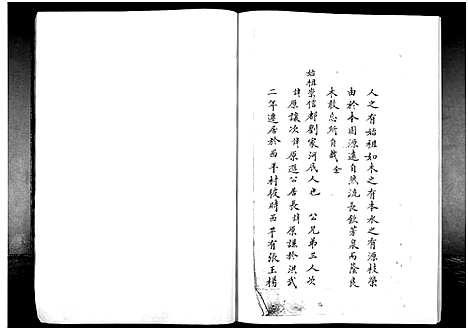 人之有始祖如木之有本水之有源枝榮
由於本固源遠自然流長飲芳泉而蔭良
木敢忘所自哉
始祖崇信都劉家河底人也 公兄弟三人次
諱原讓次諱原遜公居長諱原謙於洪武
二年遷居於西平村彼時西平有張王楊